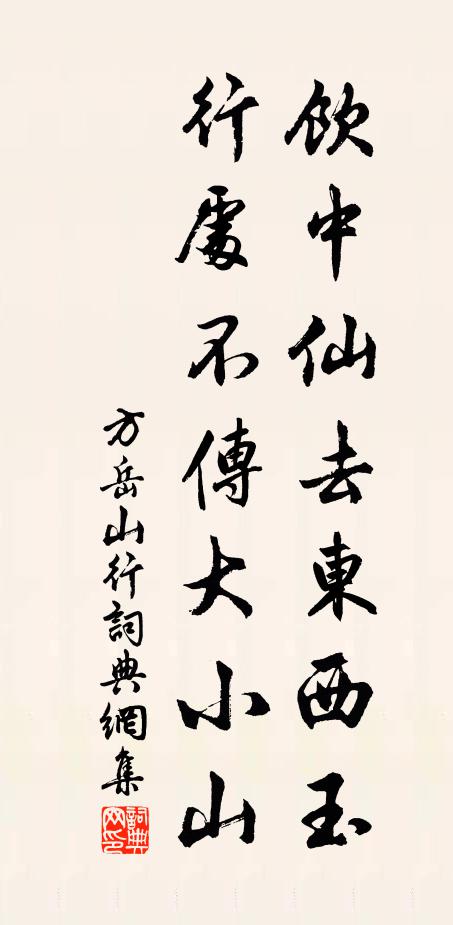 飲中仙去東西玉
行處不傳大小山
方岳山行詞典網集
詞典網印